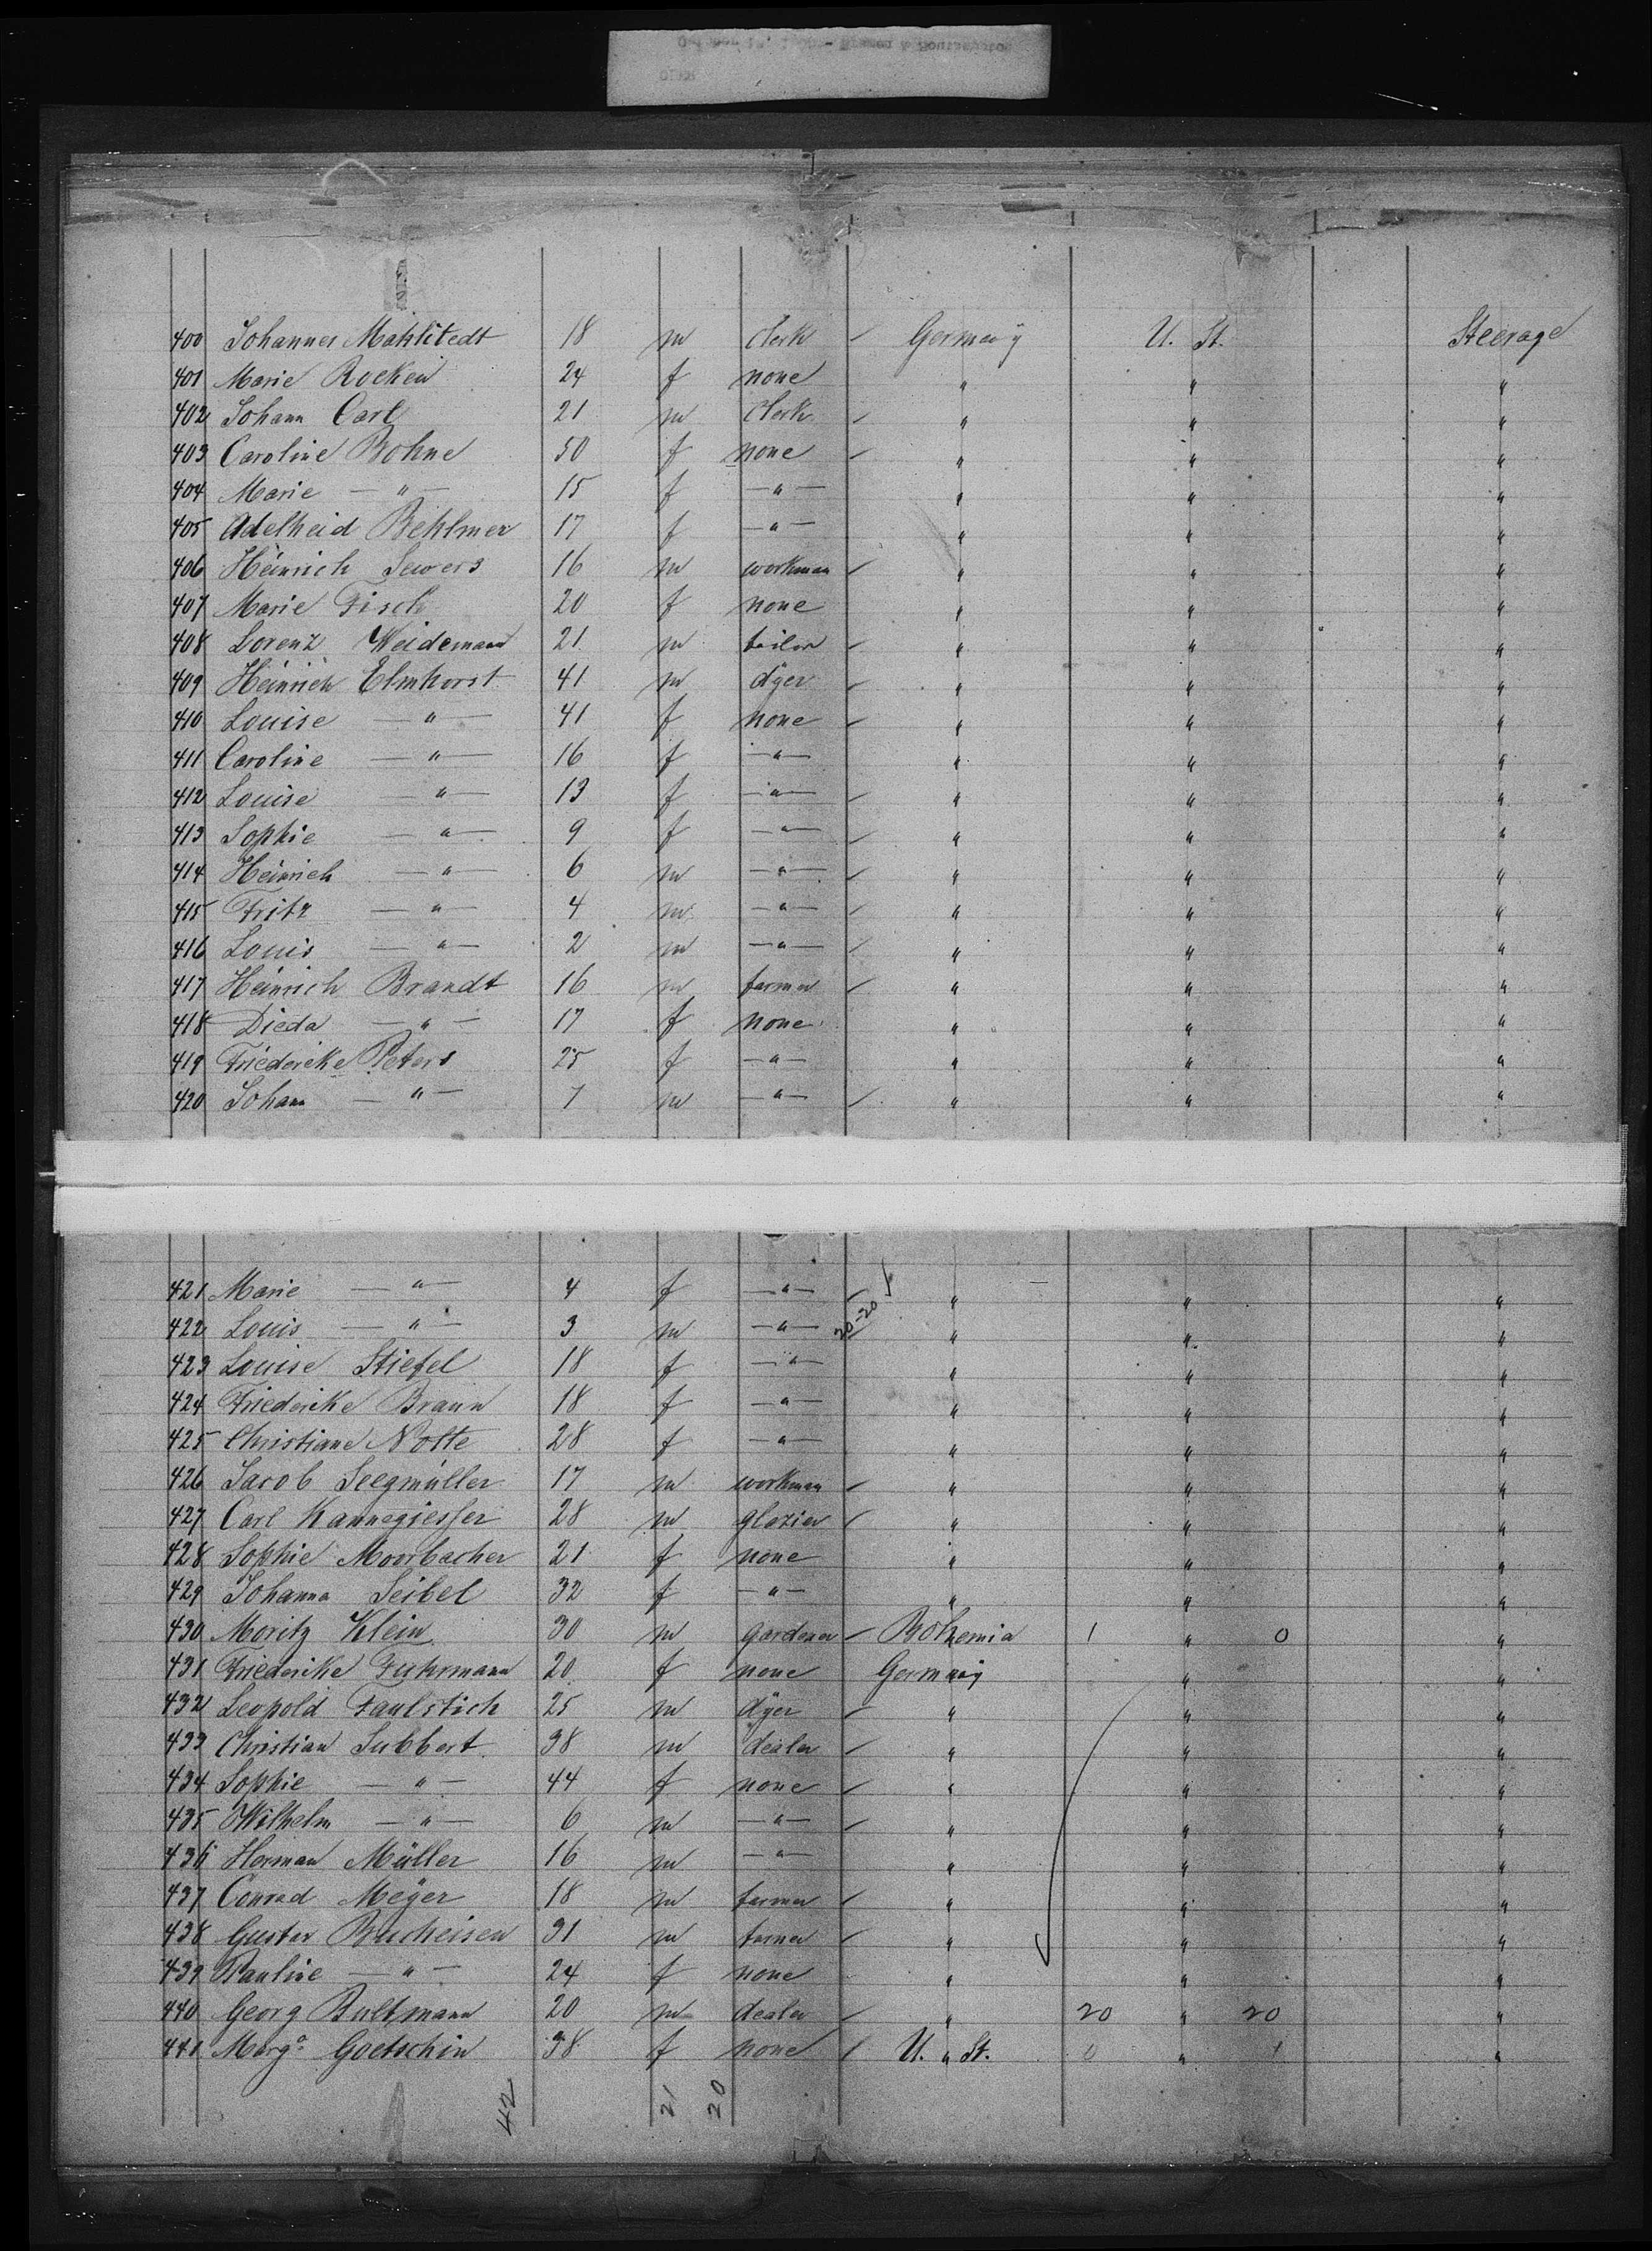 400 Johannes Mahlstedt 18 m clerk Germany U. St. Steerage
401 Marie Rocken 24 f none " " "
402 Johann Carl 21 m clerk " " "
403 Caroline Bohne 50 f none " " "
404 Marie — " — 15 f — " — " " "
405 Adelheid Behlmer 17 f — " — " " "
406 Heinrich Sewers 16 m workman " " "
407 Marie Fisch 20 f none " " "
408 Lorenz Weidemann 21 m tailor " " "
409 Heinrich Elmhorst 41 m dÿer " " "
410 Louise — " — 41 f none " " "
411 Caroline — " — 16 f — " — " " "
412 Louise — " — 13 f — " — " " "
413 Sophie — " — 9 f — " — " " "
414 Heinrich — " — 6 m — " — " " "
415 Fritz — " — 4 m — " — " " "
416 Louis — " — 2 m — " — " " "
417 Heinrich Brandt 16 m farmer " " "
418 Dieda — " — 17 f none " " "
419 Friedericke Peters 25 f — " — " " "
420 Johann — " — 7 m — " — " " "
421 Marie — " — 4 f — " — " " "
422 Louis — " — 3 m — " — 20-20 " " "
423 Louise Stiefel 18 f — " — " " "
424 Friederike Braun 18 f — " — " " "
425 Christiane Nolte 28 f — " — " " "
426 Jacob Seegmüller 17 m workman " " "
427 Carl Kannegiesser 28 m glazier " " "
428 Sophie Moorbacher 21 f none " " "
429 Johanna Seibel 32 f — " — " " "
430 Moritz Klein 30 m gardener Bohemia 1 " 0 "
431 Friederike Fuhrmann 20 f none Germany " "
432 Leopold Faulstich 25 m dÿer " " "
433 Christian Subbert 38 m dealer " " "
434 Sophie — " — 44 f none " " "
435 Wilhelm — " — 6 m — " — " " "
436 Herman Müller 16 m — " — " " "
437 Conrad Meÿer 18 m farmer " " "
438 Gustav Bucheisen 31 m " " "
439 Pauline — " — 24 f none " " "
440 Georg Bultmann 20 m dealer " 20 " 20 "
441 Marg.a Goetschin 38 f none U. " St. 0 " 1 "
42 21 20